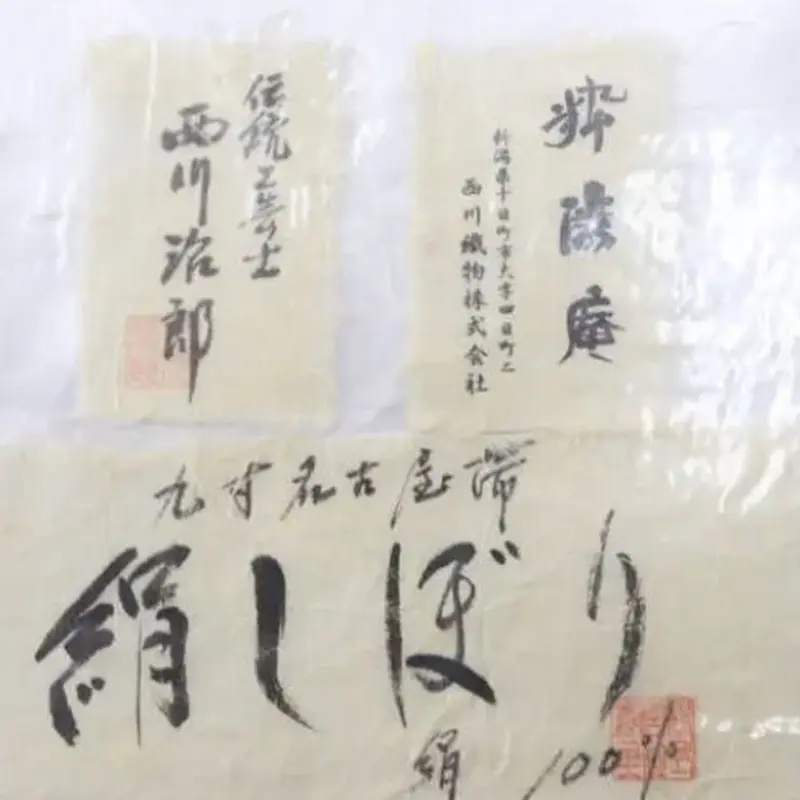 粋
庵
新潟県十日町市大字四日町二
西川織物株式会社
伝統工芸士
西川治郎
九寸名古屋帯
絹しぼり
絹 100%